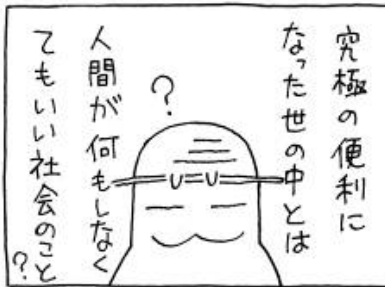 究極の便利に
なった世の中とは
?
人間が何もしなく
てもいい社会のこと
?